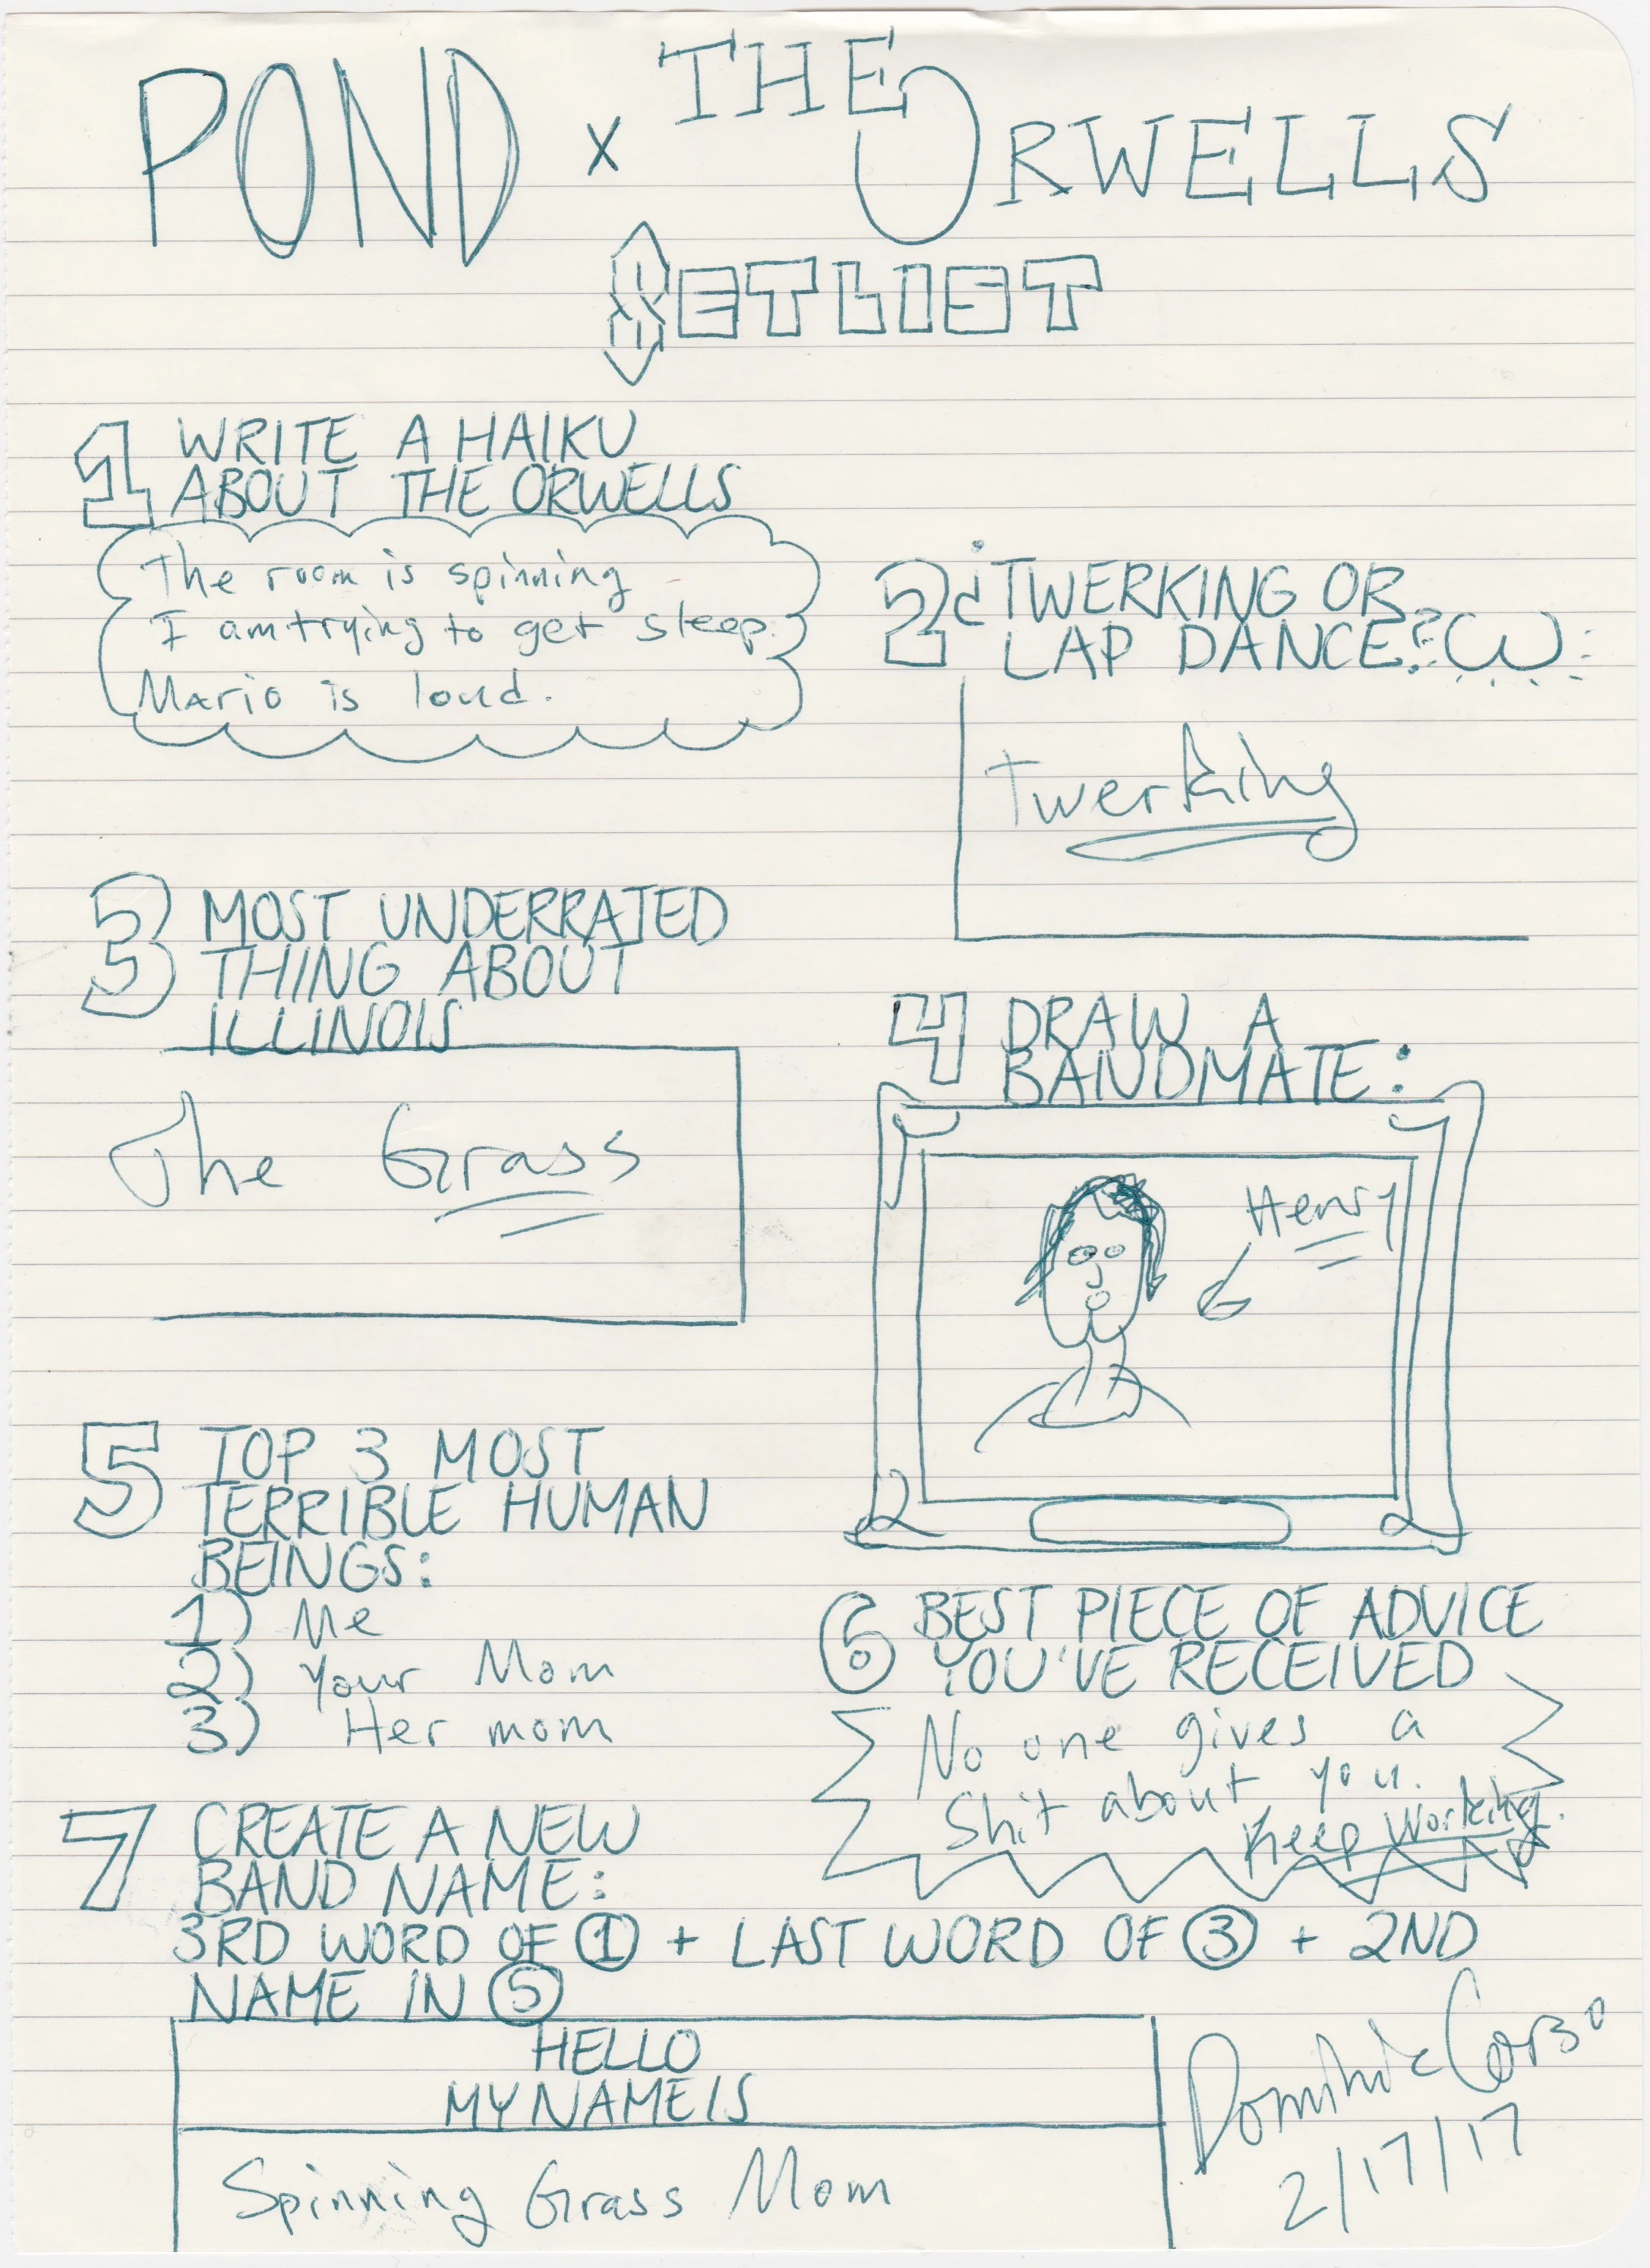 POND x THE ORWELLS
SETLIST
1 WRITE A HAIKU
ABOUT THE ORWELLS
The room is spinning
I am trying to get sleep.
Mario is loud.
2 ¿TWERKING OR
LAP DANCE?
Twerking
3 MOST UNDERRATED
THING ABOUT
ILLINOIS
The Grass
4 DRAW A
BANDMATE:
Henry
5 TOP 3 MOST
TERRIBLE HUMAN
BEINGS:
1) Me
2) Your Mom
3) Her mom
6 BEST PIECE OF ADVICE
YOU'VE RECEIVED
No one gives a
Shit about you.
Keep Working.
7 CREATE A NEW
BAND NAME:
3RD WORD OF 1 + LAST WORD OF 3 + 2ND
NAME IN 5
HELLO
MY NAME IS
Spinning Grass Mom
Dominic Corso
2/17/17